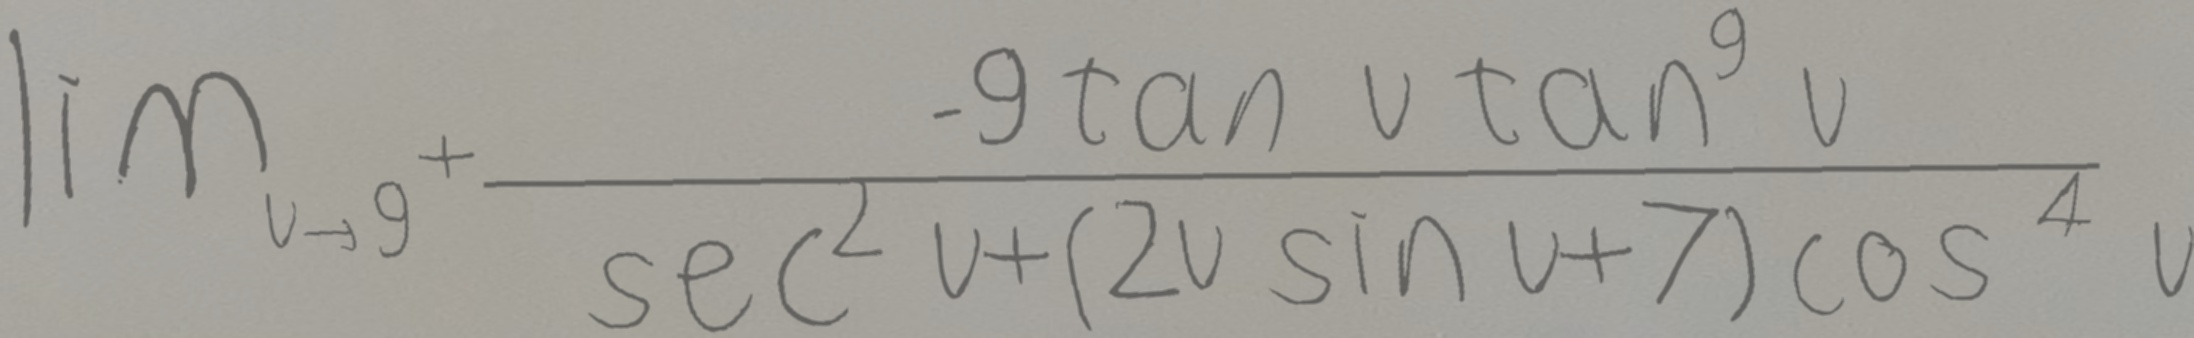 \lim_{v \to 9^+} \frac{-9 \tan v \tan^9 v}{\sec^2 v + (2v \sin v + 7) \cos^4 v}